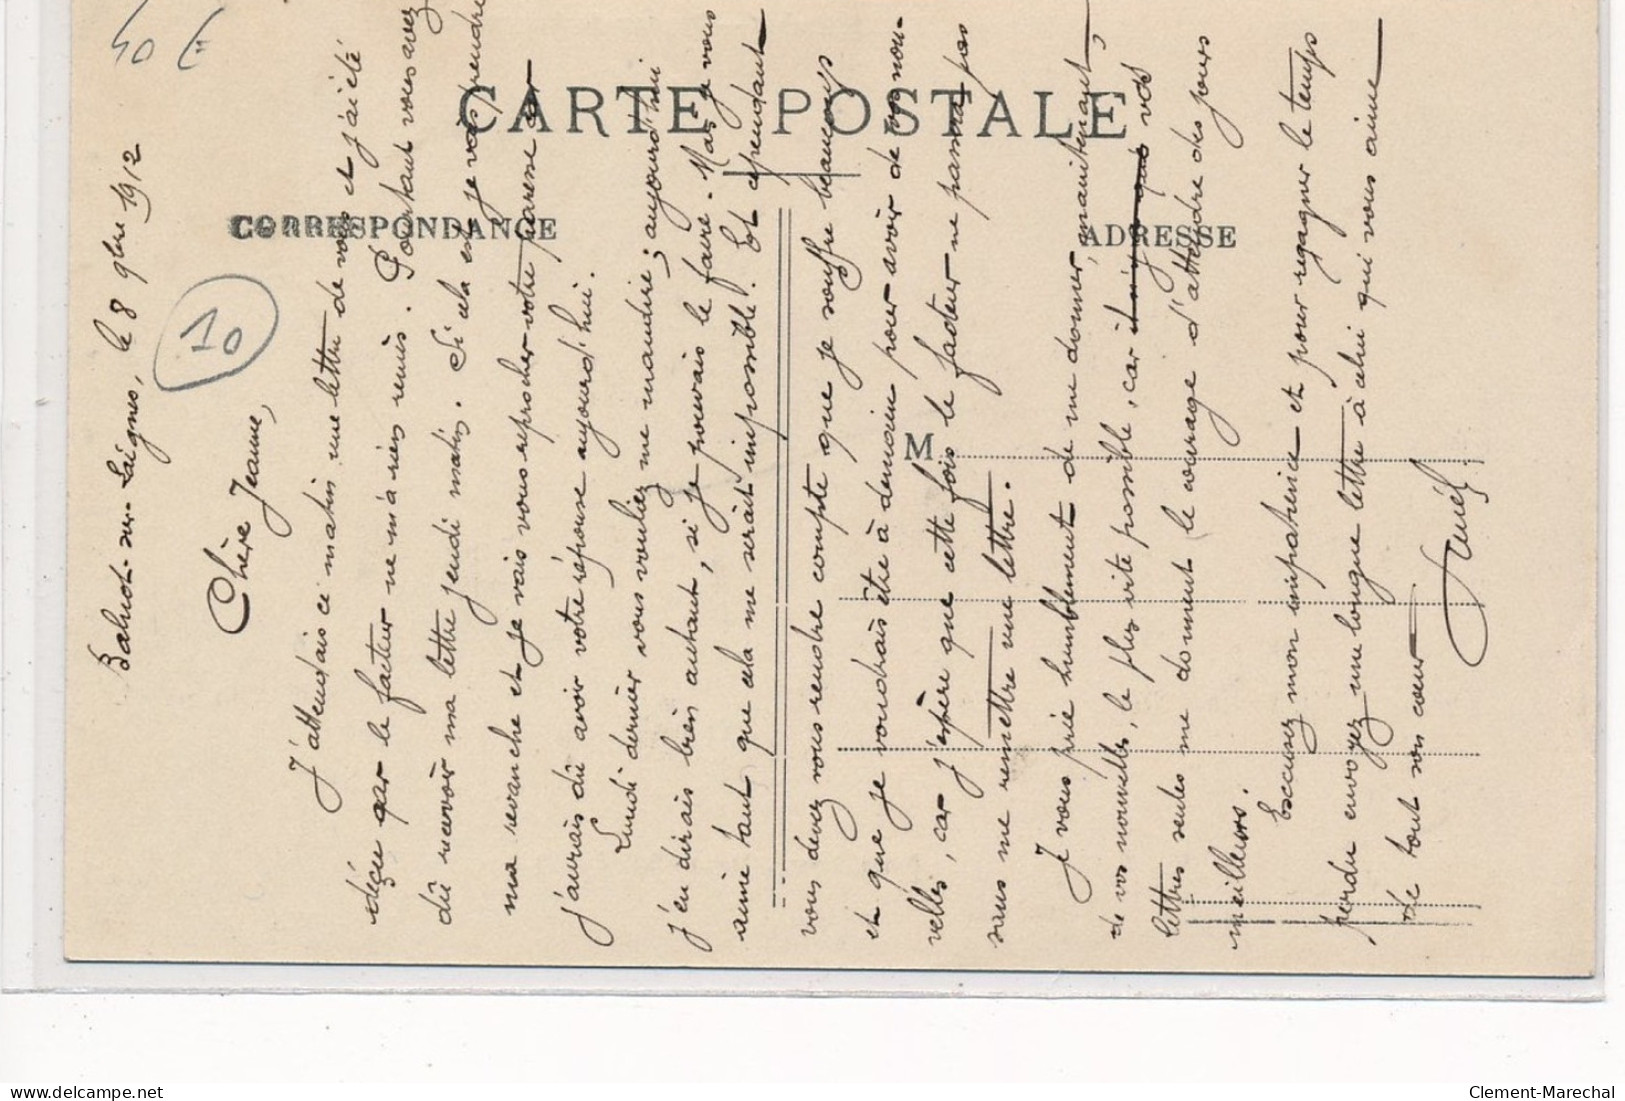 40 €
CARTE POSTALE
CORRESPONDANCE
ADRESSE
M
10
Balnot-sur-Laignes, le 8 9bre 1912
Chère Jeanne,
J'attendais ce matin une lettre de vous et j'ai été
déçu par le facteur ne m'a rien remis. Pourtant vous avez
dû recevoir ma lettre jeudi matin. Si cela est je vais prendre
ma revanche et je vais vous reprocher votre paresse car
j'aurais dû avoir votre réponse aujourd'hui.
Lundi dernier vous vouliez me maudire ; aujourd'hui
j'en dirais bien autant, si je pouvais le faire. Mais je vous
aime tant que cela me serait impossible. Et cependant
vous devez vous rendre compte que je souffre beaucoup
et que je voudrais être à demain pour avoir de vos nou-
velles, car j'espère que cette fois le facteur ne passera pas
sans me remettre une lettre.
Je vous prie humblement de me donner, maintenant,
de vos nouvelles, le plus vite possible, car il n'y a que vos
lettres seules me donnent le courage d'attendre des jours
meilleurs.
Excusez mon impatience et pour regagner le temps
perdu envoyez une longue lettre à celui qui vous aime
de tout son cœur
Clement-Marechal